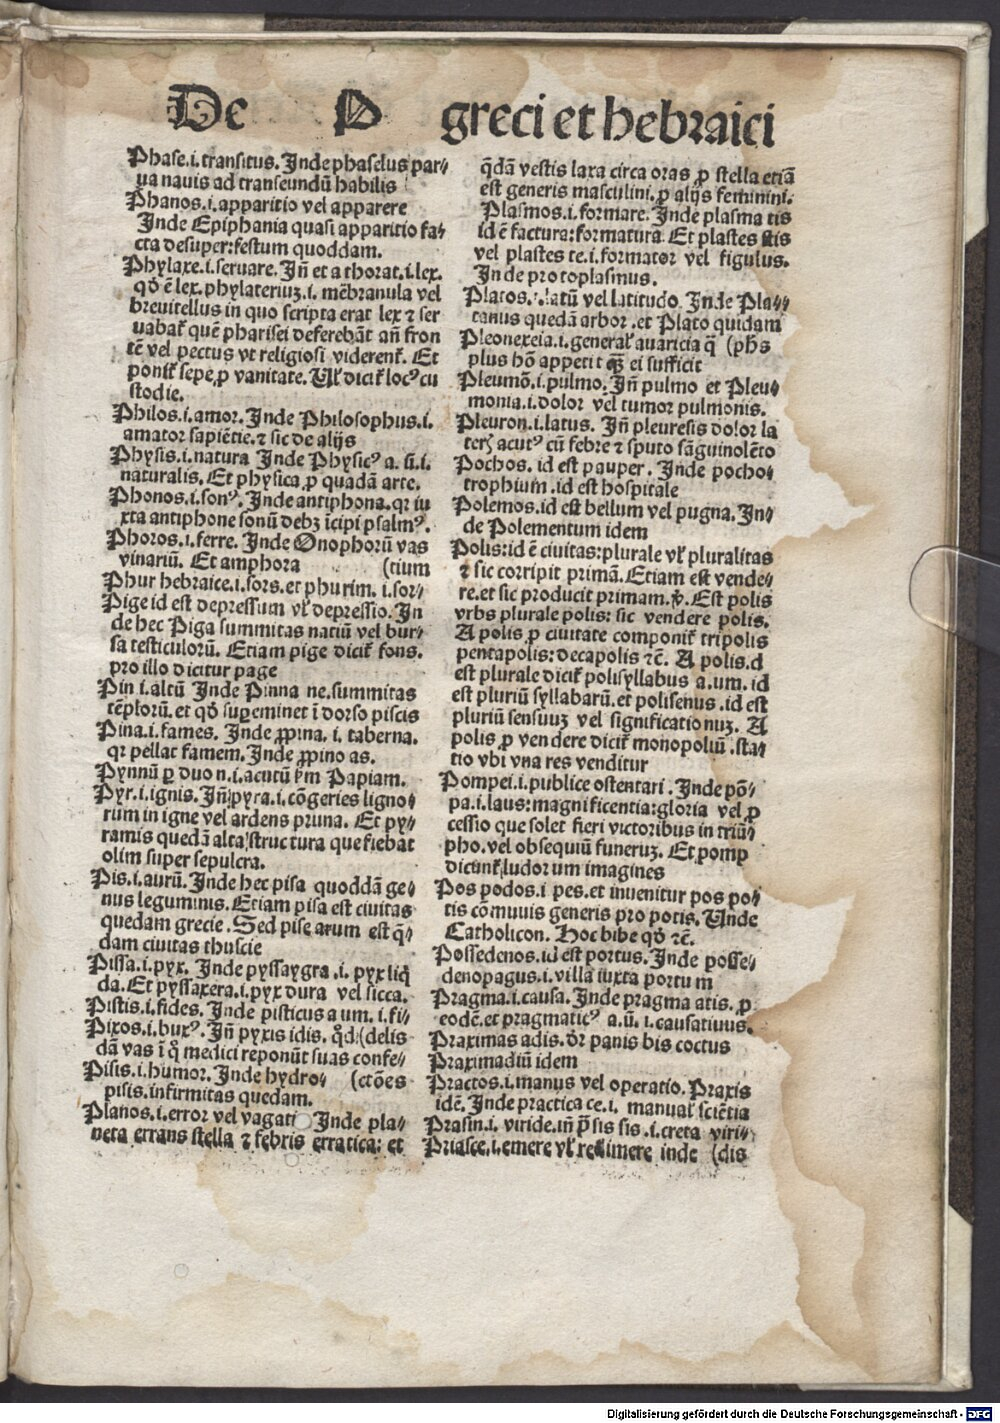 De P greci et hebraici
Phase.i.transitus. Inde phaselus par⸗
ua nauis ad transeundū habilis
Phanos.i.apparitio vel apparere
Inde Epiphania quasi apparitio fa⸗
cta desuper:festum quoddam.
Phylaxe.i.seruare. Iñ et a thorat.i.lex.
qđ ē lex. phylateriuꝫ.i. mēbranula vel
breuitellus in quo scripta erat lex ⁊ ser
uabat᷑ quē pharisei deferebāt añ fron
tē vel pectus vt religiosi viderent᷑. Et
ponit᷑ sepe ꝓ vanitate. Vl᷑ dicit᷑ locꝰ cu
stodie.
Philos.i.amor. Inde Philosophus.i.
amator sapiētie.⁊ sic de alijs
Physis.i.natura Inde Physicꝰ a. ū.i.
naturalis. Et physica ꝓ quadā arte.
Phonos.i.sonꝰ. Inde antiphona.qr iu
xta antiphone sonū debꝫ īcipi psalmꝰ.
Phoros.i.ferre. Inde Onophorū vas
vinariū. Et amphora (tium
Phur hebraice.i.sors.et phurim. i.sor⸗
Pige id est depressum vl᷑ depressio. In
de hec Piga summitas natiū vel bur⸗
sa testiculorū. Etiam pige dicit᷑ fons.
pro illo dicitur page
Pin i.altū Inde Pinna ne.summitas
tēplorū.et qđ suꝑeminet ī dorso piscis
Pina.i.fames. Inde ꝓpina. i. taberna.
qr pellat famem. Inde ꝓpino as.
Pynnū ꝑ duo n.i.acutū ẜm Papiam.
Pyr.i.ignis. Iñ pyra.i.cōgeries ligno⸗
rum in igne vel ardens pruna. Et py⸗
ramis quedā alta structura que fiebat
olim super sepulcra.
Pis.i.aurū. Inde hec pisa quoddā ge⸗
nus leguminis. Etiam pisa est ciuitas
quedam grecie. Sed pise arum est q̄⸗
dam ciuitas thuscie
Pissa.i.pyx. Inde pyssaygra.i. pyx liq̄
da. Et pyssaxera.i.pyx dura vel sicca.
Pistis.i.fides. Inde pisticus a um. i.fi⸗
Pixos.i.buxꝰ. Iñ pyxis idis. q̄d (delis
dā vas ī q̊ medici reponūt suas confe⸗
Pisis.i.humor. Inde hydro⸗ (ctōes
pisis.infirmitas quedam.
Planos.i.error vel vagati Inde pla⸗
neta errans stella ⁊ febris erratica: et
q̄dā vestis laxa circa oras ꝓ stella etiā
est generis masculini.ꝓ alijs feminini.
Plasmos.i.formare. Inde plasma tis
id ē factura:formatura Et plastes stis
vel plastes te.i.formator vel figulus.
Inde protoplasmus.
Platos. latū vel latitudo. Inde Pla⸗
tanus quedā arbor.et Plato quidam
Pleonexeia.i.general᷑ auaricia q̄ (phs
plus hō appetit qꝫ ei sufficit
Pleumō.i.pulmo. Iñ pulmo et Pleu⸗
monia.i.dolor vel tumor pulmonis.
Pleuron.i.latus. Iñ pleuresis dolor la
terꝭ acutꝰ cū febre ⁊ sputo sāguinolēto
Pochos. id est pauper. Inde pocho⸗
trophium.id est hospitale
Polemos.id est bellum vel pugna. In⸗
de Polementum idem
Polis:id ē ciuitas:plurale vl᷑ pluralitas
⁊ sic corripit primā. Etiam est vende⸗
re.et sic producit primam. ꝟ. Est polis
vrbs plurale polis: sic vendere polis.
A polis ꝓ ciuitate componit᷑ tripolis
pentapolis: decapolis ⁊c̄. A polis.qđ
est plurale dicit᷑ polisyllabus a.um. id
est pluriū syllabarū.et polisenus.id est
pluriū sensuuꝫ vel significationuꝫ. A
polis ꝓ vendere dicit᷑ monopoliū.sta⸗
tio vbi vna res venditur
Pompei.i.publice ostentari. Inde pō⸗
pa.i.laus:magnificentia:gloria vel ꝓ
cessio que solet fieri victoribus in triū⸗
pho.vel obsequiū funeruꝫ. Et pompe
dicunt᷑ ludorum imagines
Pos podos.i pes.et inuenitur pos po⸗
tis cōmunis generis pro potis. Vnde
Catholicon. Hoc bibe qđ ⁊c̄.
Possedenos.id est portus. Inde posse⸗
denopagus.i.villa iuxta portum
Pragma.i.causa. Inde pragma atis. ꝓ
eodē.et pragmaticꝰ a.ū. i.causatiuus.
Praximas adis.dr panis bis coctus
Praximadiū idem
Practos.i.manus vel operatio. Praxis
idē. Inde practica ce.i. manual᷑ sciētia
Prasin.i. viride.iñ p̄sis sis.i.creta viri⸗
Priasce.i.emere vl᷑ redimere inde (dis
Digitalisierung gefördert durch die Deutsche Forschungsgemeinschaft - DFG